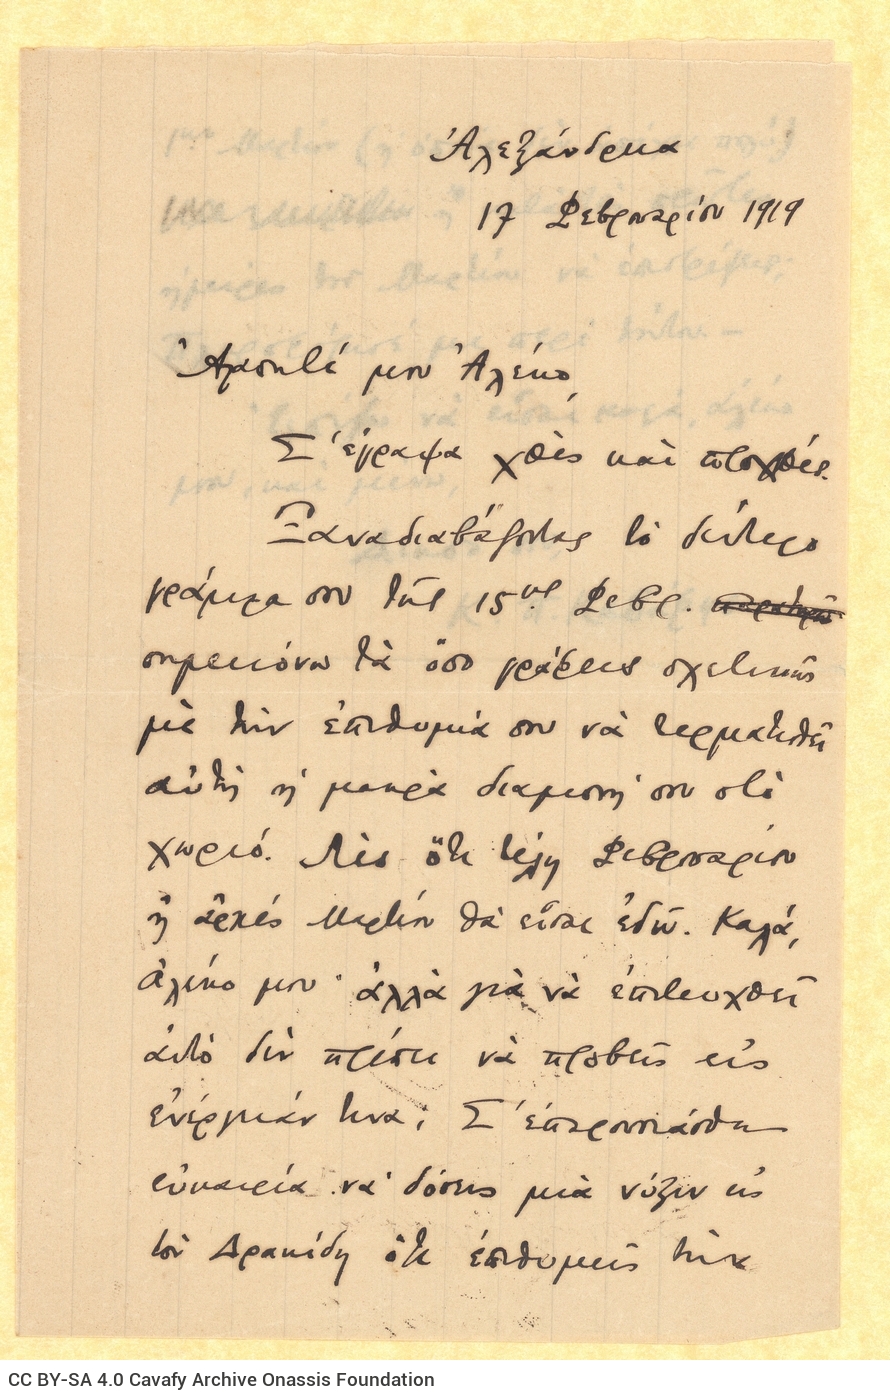 Ἀλεξάνδρεια
17 Φεβρουαρίου 1919
Ἀγαπητέ μου Ἀλέκο,
Σ' ἔγραψα χθὲς καὶ προχθές.
Ξαναδιαβάζοντας τὸ δεύτερο
γράμμα σου τῆς 15ης Φεβρ.
σημειόνω τὰ ὅσα γράφεις σχετικῶς
μὲ τὴν ἐπιθυμία σου νὰ τερματισθεῖ
αὐτὴ ἡ μακρὰ διαμονή σου στὸ
χωριό. Λὲς ὅτι τέλη Φεβρουαρίου
ἢ ἀρχὲς Μαρτίου θὰ εἶσαι ἐδῶ. Καλά,
Ἀλέκο μου· ἀλλὰ γιὰ νὰ ἐπιτευχθεῖ
αὐτὸ δὲν πρέπει νὰ προβεῖς εἰς
ἐνέργειάν τινα; Σ' ἐπαρουσιάσθη
εὐκαιρία νὰ δόσεις μιὰ νύξιν εἰς
τὸν Δρακίδη ὅτι ἐπιθυμεῖς τὴν
CC BY-SA 4.0 Cavafy Archive Onassis Foundation